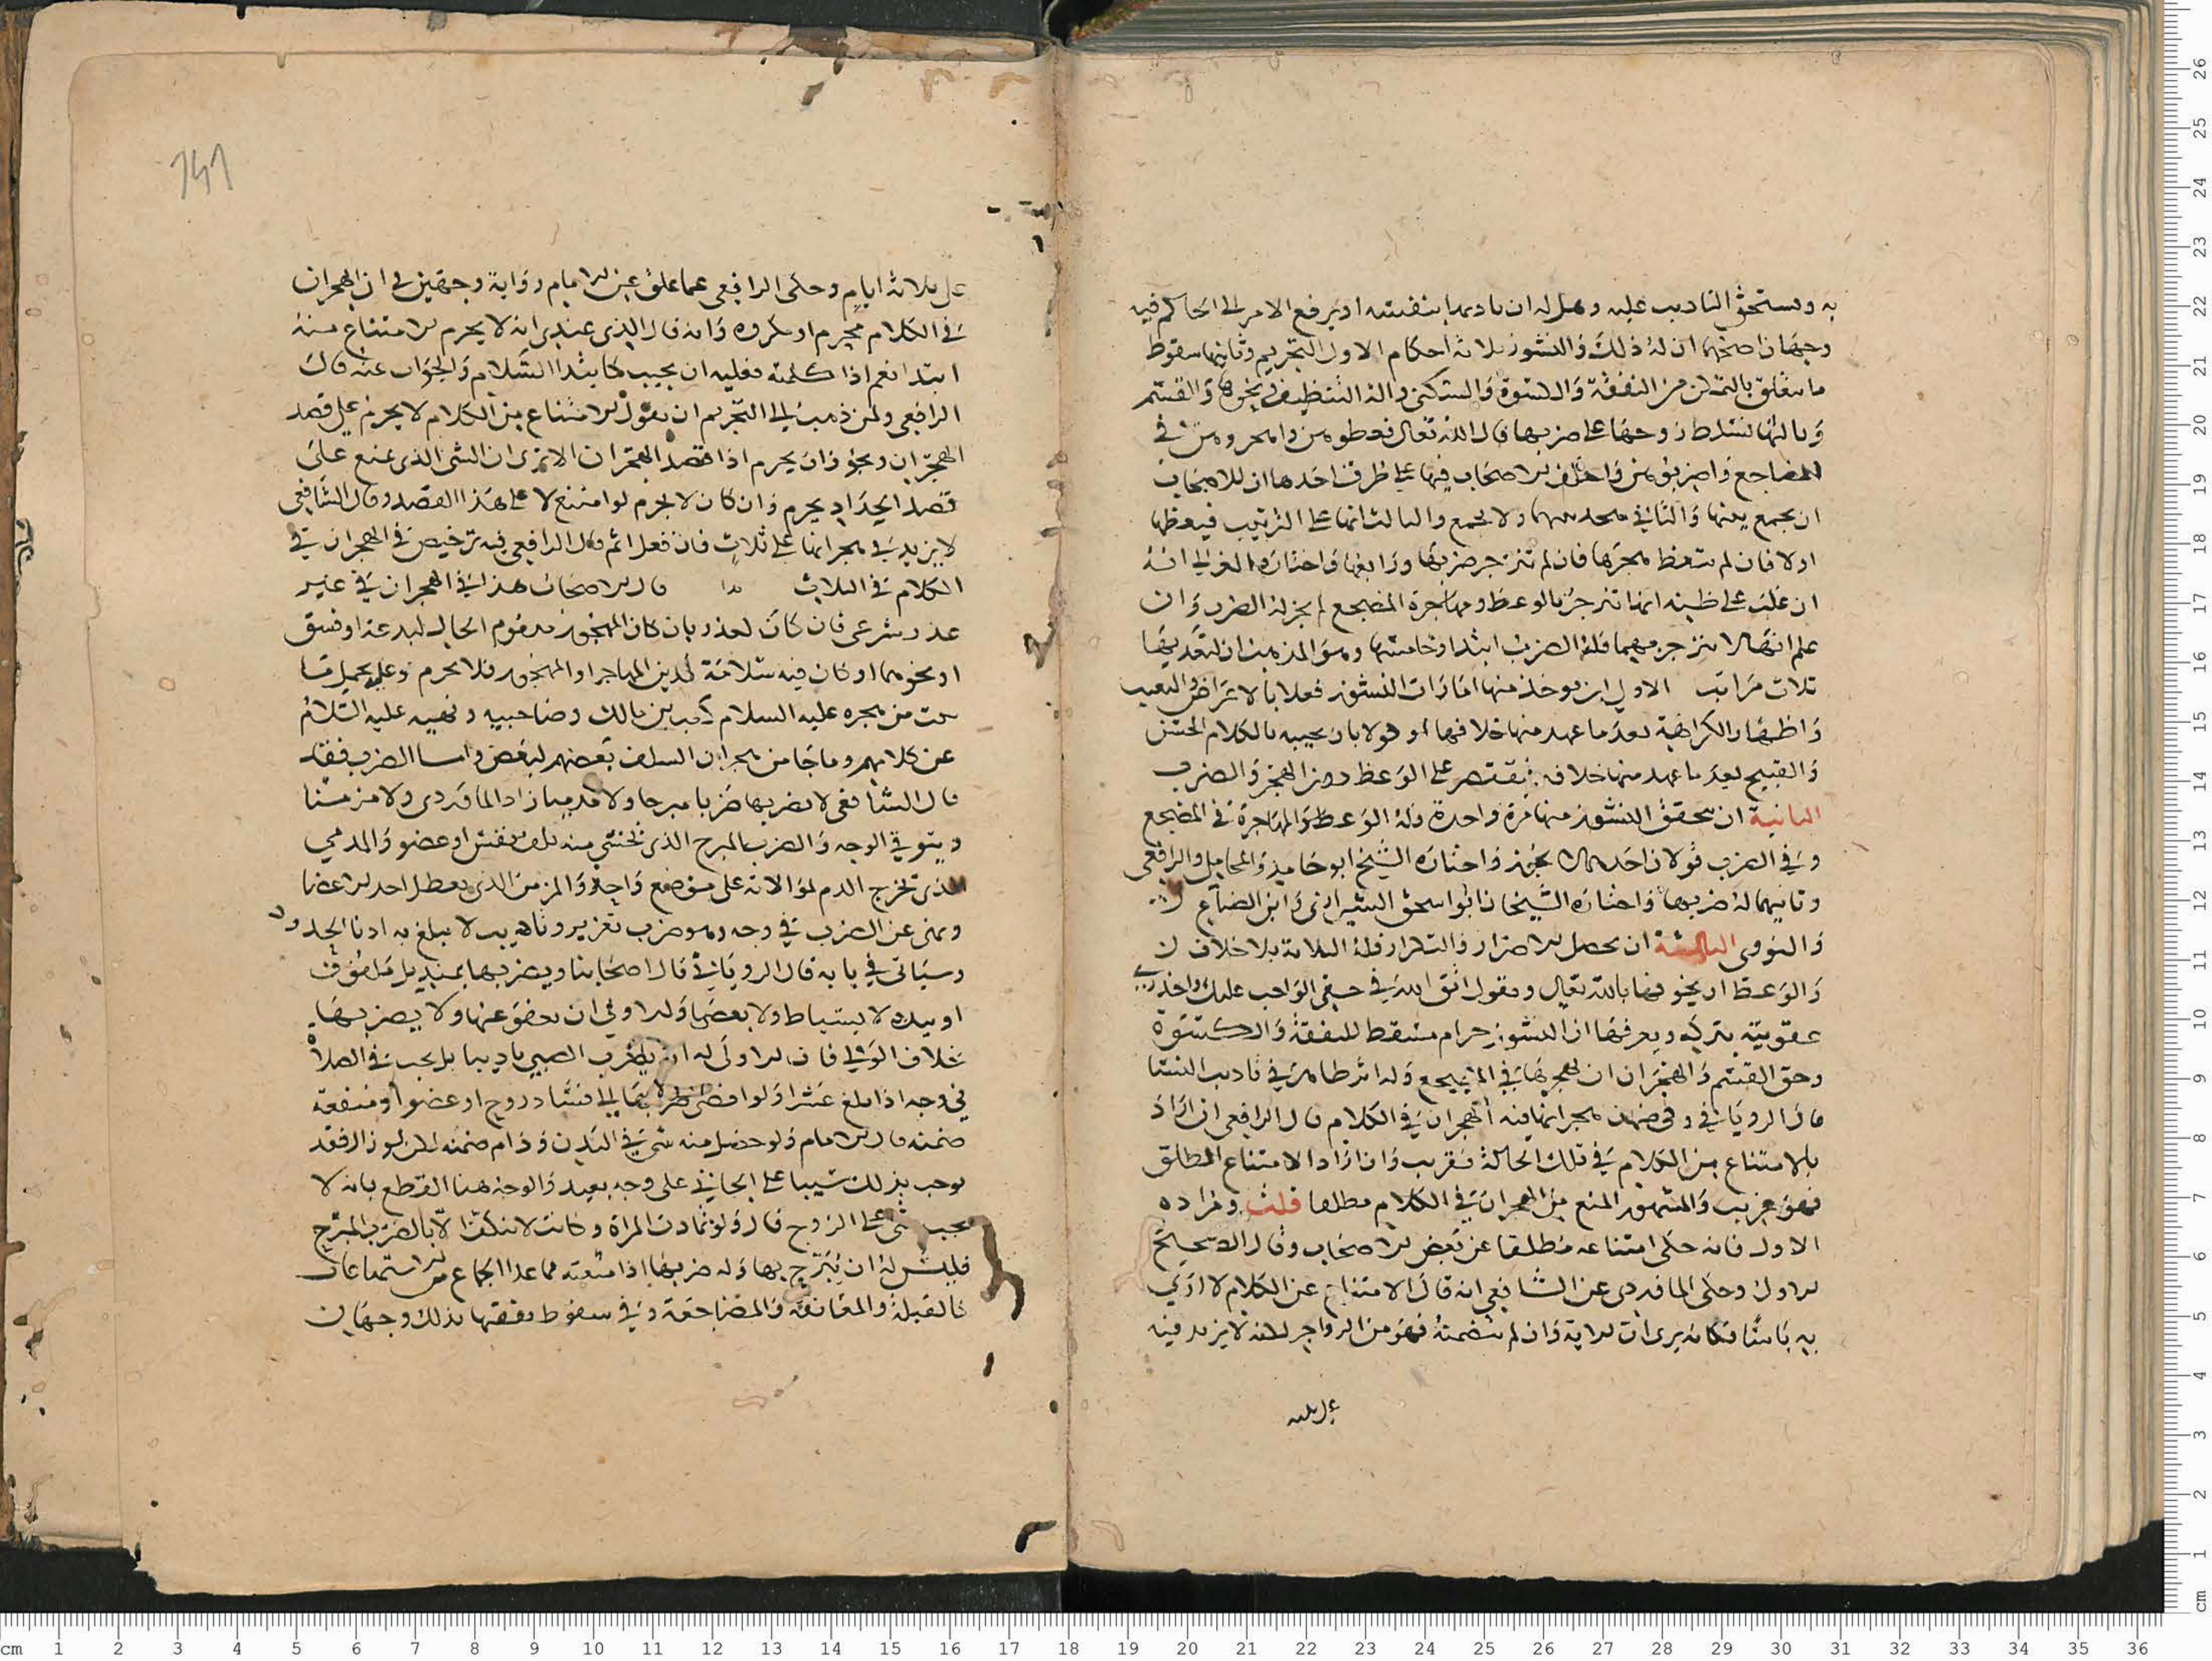 به ويستحق التاديب عليه وهل له ان يادبها بنفسه او يرفع الامر الى الحاكم فيه
وجهان اصحهما ان له ذلك وللنشوز ثلاثة احكام الاول التحريم وثانيها سقوط
ما يتعلق بالتمكن من النفقة والكسوة والسكنى والة التنظيف ونحوها والقسم
وثالثها تسلط زوجها على ضربها قال الله تعالى فعظوهن واهجروهن في
المضاجع واضربوهن واختلف الاصحاب فيها على طرق احدها ان للاصحاب
ان يجمع بينها والثاني ولا يجمع والثالث انها على الترتيب فيعظها
اولا فان لم تتعظ هجرها فان لم تنزجر ضربها ورابعها واختاره الغزالي انه
ان غلب على ظنه انها تنزجر بالوعظ ومهاجرة المضجع لم يجز له الضرب وان
علم انها لا تنزجر بهما فله الضرب ابتدا وخامسها وهو المذهب ان لتعديها
ثلاث مراتب الاول ان يوخذ منها امارات النشوز فعلا بالاعراض
واظهار الكراهية بعد ما عهد منها خلافها او قولا بان يجيبه بالكلام الخشن
والقبيح بعد ما عهد منها خلافه فيقتصر على الوعظ دون الهجر والضرب
الثانية ان يتحقق النشوز منها مرة واحدة وله الوعظ والمهاجرة في المضجع
وفي الضرب قولان احدهما لا يجوز واختاره الشيخ ابو حامد والمحاملي والرافعي
وثانيهما له ضربها واختاره الشيخان ابو اسحق الشيرازي وابن الصباغ
والنووي الثالثة ان يحصل الاضرار والتكرار فله الثلاثة بلا خلاف
والوعظ ان يخوفها بالله تعالى ويقول اتق الله في حقي الواجب عليك واحذري
عقوبته بتركه ويعرفها ان النشوز حرام مسقط للنفقة والكسوة
وحق القسم والهجران ان يهجرها في المضجع وله اثر ظاهر في تاديب النسا
قال الروياني وفي ضمن هجرانها فيه الهجران في الكلام قال الرافعي ان اراد
بالامتناع من الكلام في تلك الحالة فقريب وان اراد الامتناع المطلق
فهو غريب والمشهور المنع من الهجران في الكلام مطلقا قلت ومراده
الاول فانه حكى امتناعه مطلقا عن بعض الاصحاب وقال الصحيح
الاول وحكى الماوردي عن الشافعي انه قال الامتناع عن الكلام لا ارى
به باسا فكانه يرى ان الاية وان لم تتضمنه فهو من الزواجر لكنه لا يزيد فيه
على ثلثه
على ثلاثة ايام وحكى الرافعي عما علق عن الامام رواية وجهين في ان الهجران
في الكلام محرم او مكروه وانه قال الذي عندي انه لا يحرم الامتناع منه
ابتدا نعم اذا كلمته فعليه ان يجيب كابتدا السلام والجواب عنه قال
الرافعي ولمن ذهب الى التحريم ان يقول الامتناع من الكلام لا يحرم على قصد
الهجران ويجوز ان يحرم اذا قصد الهجران الا ترى ان الشي الذي يمنع على
قصد الحداد يحرم وان كان لا يحرم لو امتنع لا على هذا القصد وقال الشافعي
لا يزيد في هجرانها على ثلاث فان فعل اثم قال الرافعي فيه ترخيص في الهجران في
الكلام في الثلاث قال الاصحاب هذا في الهجران في غير
عذر شرعي فان كان لعذر بان كان المهجور مذموم الحال لبدعة او فسق
او نحوهما او كان فيه سلامة لدين المهاجر او المهجور فلا يحرم وعليه يحمل ما
من هجره عليه السلام كعب بن مالك وصاحبيه ونهيه عليه السلام
عن كلامهم وما جا من هجران السلف بعضهم لبعض واما الضرب فقد
قال الشافعي لا يضربها ضربا مبرحا ولا مدميا زاد الماوردي ولا مزمنا
ويتوقي الوجه والضرب المبرح الذي يخشى منه تلف نفس او عضو والمدمي
الذي يخرج الدم لموالاته على موضع واحد والمزمن الذي يعطل احد الاعضا
ونهى عن الضرب في وجه وهو ضرب تعزير وتاديب لا يبلغ به ادنا الحدود
وسياتي في بابه قال الروياني قال اصحابنا ويضربها بمنديل ملفوف
او بيده لا بسياط ولا بعصا والاولى ان يعفو عنها ولا يضربها
خلاف الولي فان الاولى له ان يضرب الصبي تاديبا بل يجب في الصلاة
في وجه اذا بلغ عشرا ولو افضى ضربها الى فساد روح او عضو او منفعة
ضمنه قال الامام ولو حصل منه شي في البدن ودام ضمنه فقد
يوجب بذلك شيا على الجاني على وجه بعيد والوجه هنا القطع بانه لا
يجب شي على الزوج قال ولو تمادت المراة وكانت لا تنكف الا بالضرب المبرح
فليس له ان يبرح بها وله ضربها اذا منعته مما عدا الجماع من الاستمتاعات
كالقبلة والمعانقة والمضاجعة وفي سقوط نفقتها بذلك وجهان